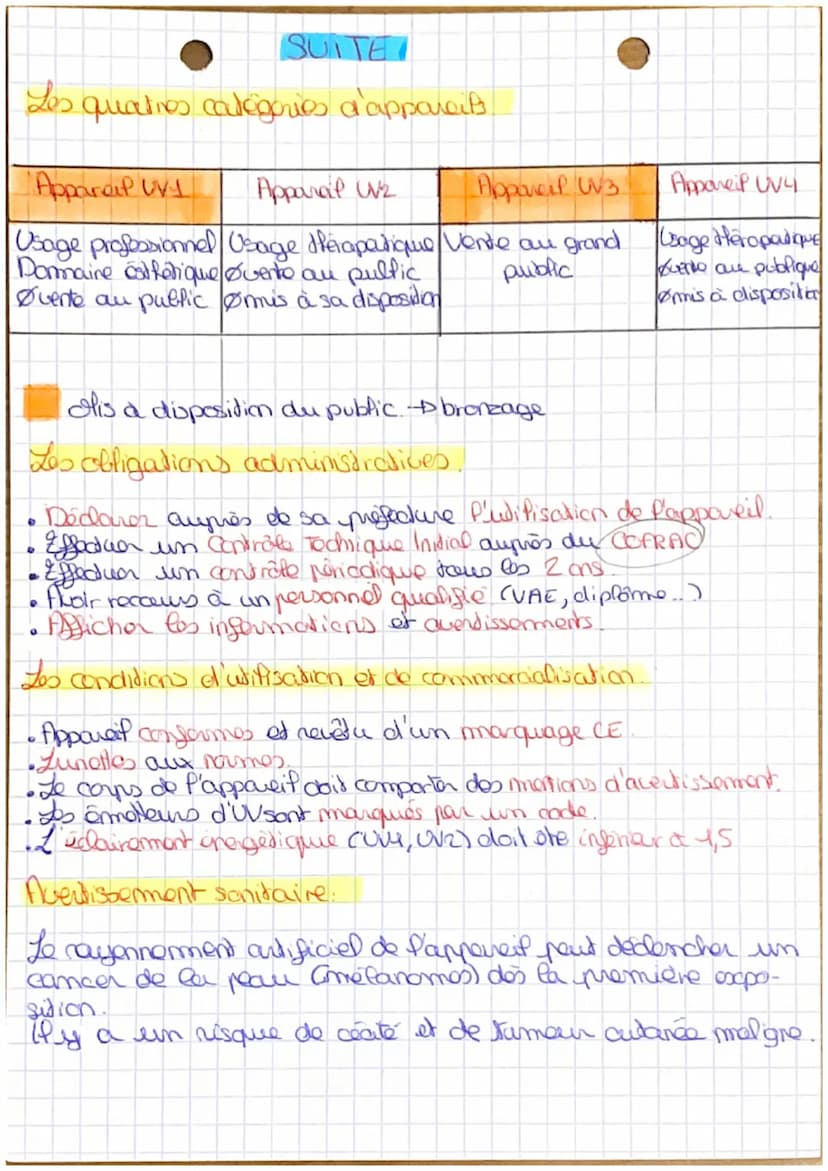 SUITE
Les quatres catégories d'appareils
Appareil UV1 Appareil UV2 Appareil UV3 Appareil UV4
Usage professionnel Usage thérapatique Vente au grand Usage théropatique
Domaine esthétique Øvente au public public Øvente au publique
Øvente au public Ømis à sa disposition Ømis à disposition
Mis à disposition du public → bronzage
Les obligations administratives.
• Déclarer auprès de sa préfecture l'utilisation de l'appareil.
• Effectuer un Contrôle Technique Initial auprès du COFRAC
• Effectuer un contrôle périodique tous les 2 ans.
• Avoir recours à un personnel qualifié (VAE, diplôme..)
• Afficher les informations et avertissements.
Les conditions d'utilisation et de commercialisation.
• Appareil conformes et revêtu d'un marquage CE.
• Lunettes aux normes.
• Le corps de l'appareil doit comporter des mentions d'avertissement.
• Les émetteurs d'UV sont marqués par un code.
• L'éclairement énergétique (UV1, UV2) doit être inférieur à 1,5
Avertissement sanitaire:
Le rayonnement artificiel de l'appareil peut déclencher un
cancer de la peau (mélanomes) dès la première expo-
sition.
Il y a un risque de cécité et de tumeur cutanée maligne.